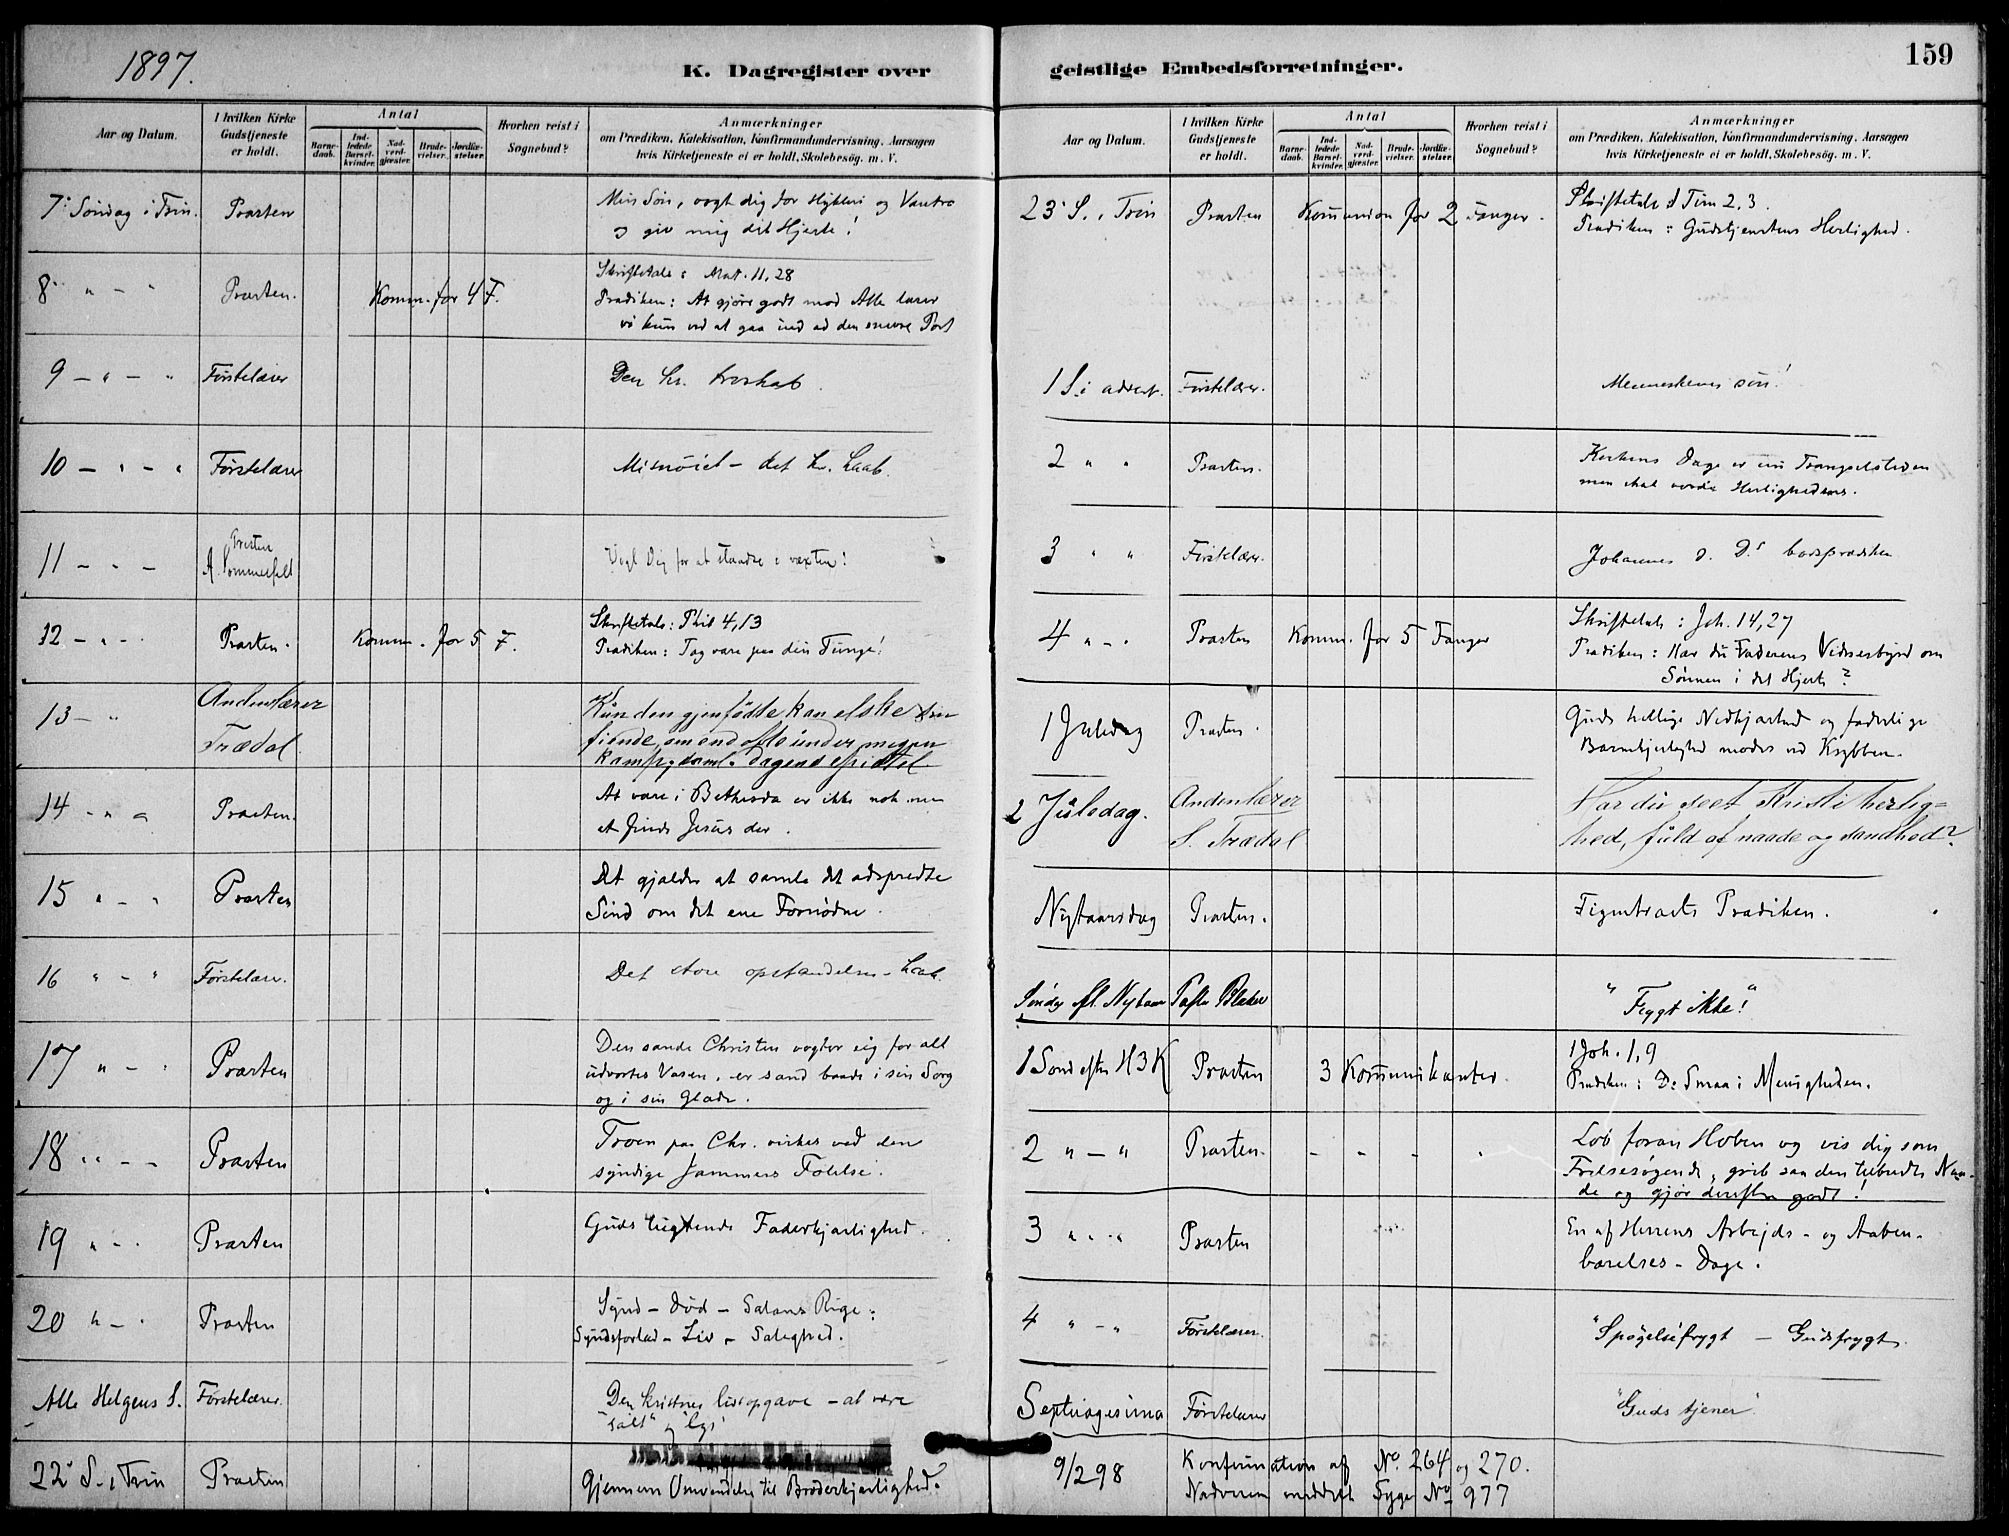 1897.
K. Dagregister over
Aar og Datum.
I hvilken Kirke Gudstjeneste er holdt.
Antal
Barne-daab.
Ind-ledede Barsel-kvinder.
Nad-verd-gjester.
Brude-vielser.
Jordfæ-stelser.
Hvorhen reist i Sognebud?
Anmærkninger
om Prædiken, Katekisation, Konfirmandundervisning, Aarsagen
hvis Kirketjeneste ei er holdt, Skolebesög. m. V.
7' Søndag i Trin. Præsten Min Søn, vogt dig for Hykleri og Vantro
og giv mig dit Hjerte!
8' " - " Præsten. Komm. for 4 F. Skriftetale: Mat. 11, 28
Prædiken: At gjøre godt mod Alle lærer
vi kun ved at gaa ind ad den snevre Port
9 - " - " Førstelærer Den kr. troskab.
10 - " - " Førstelærer Misnøiet - det kr. haab.
11 - " - Præsten
A. Sommerfelt Vogt Dig for at standse i væxten!
12 - " - Præsten. Komm. for 5 F. Skriftetale: Phil 4, 13
Prædiken: Tag vare paa din Tunge!
13 - " Andenlærer
Trædal Kun den gjenfødte kan elske sin
fiende, om end ofte under megen
kamp, saml. dagens epistel.
14 - " Præsten. At være i Bethesda er ikke nok men
at finde Jesus der.
15 " - " Præsten Det gjælder at samle det adspredte
Sind om det ene Fornødne.
16 " - " Førstelærer. Det store opstandelses-haab.
17 " - " Præsten Den sande Christen vogter sig for alt
udvortes Væsen, er sand baade i sin Sorg
og i sin Glæde.
18 " - - Præsten Troen paa Chr. virkes ved den
syndige Jammers Følelse.
19 " - " Præsten Guds tugtende Faderkjærlighed.
20 " - " Præsten Synd - Død - Satans Rige:
Syndsforlad - Liv - Salighed.
Alle Helgens S. Førstelærer. Den kristnes livsopgave - at være
"salt" og "lys"
22' S. i Trin Præsten Gjennem Omvendelse til Broderkjærlighed.
159
geistlige Embedsforretninger.
Aar og Datum.
I hvilken Kirke Gudstjeneste er holdt.
Antal
Barne-daab.
Ind-ledede Barsel-kvinder.
Nad-verd-gjester.
Brude-vielser.
Jordfæ-stelser.
Hvorhen reist i Sognebud?
Anmærkninger
om Prædiken, Katekisation, Konfirmandundervisning, Aarsagen
hvis Kirketjeneste ei er holdt, Skolebesög. m. V.
23' S. i Trin Præsten Kommunion for 2 Fanger. Skriftetale 1 Tim 2, 3.
Prædiken: Gudstjenestens Herlighed.
1 S. i advent. Førstelærer. Menneskenes søn!
2 " " Præsten. Kirkens Dage er nu Trængselstiden
men skal vorde Herlighedens.
3 " " Førstelærer. Johannes d. D.s bodsprædiken
4 " - " Præsten Komm. for 5 Fanger Skriftetale: Joh. 14, 27
Prædiken: Har du Faderens Vidnesbyrd om
Sønnen i dit Hjerte?
1 Juledag Præsten. Guds hellige Nidkjærhed og faderlige
Barmhjertighed mødes ved Krybben.
2 Juledag. Andenlærer
S. Trædal Har du seet Kristi herlig-
hed, fuld af naade og sandhed?
Nytaarsdag Præsten. Figentræets Prædiken.
Søndg eft. Nytaar Pastor Blaker "Frygt ikke!"
1 Sønd efter H3K Præsten 3 Kommunikanter. 1 Joh. 1, 9
Prædiken: De Smaa i Menigheden.
2 " - " Præsten. - - - - Løb foran Hoben og vis dig som
Frelsesøgende, grib saa den tilbudte Naa-
de og gjør derefter godt!
3 " - " Præsten En af Herrens Arbejds- og Aaben-
barelses-Dage.
4 " - " Førstelærer. "Spøgelsefrygt - Gudsfrygt.
Septuagesima Førstelærer "Guds tjener"
9/2 98 Konfirmation af No. 264 og 270.
Nadveren meddelt Syge No 977